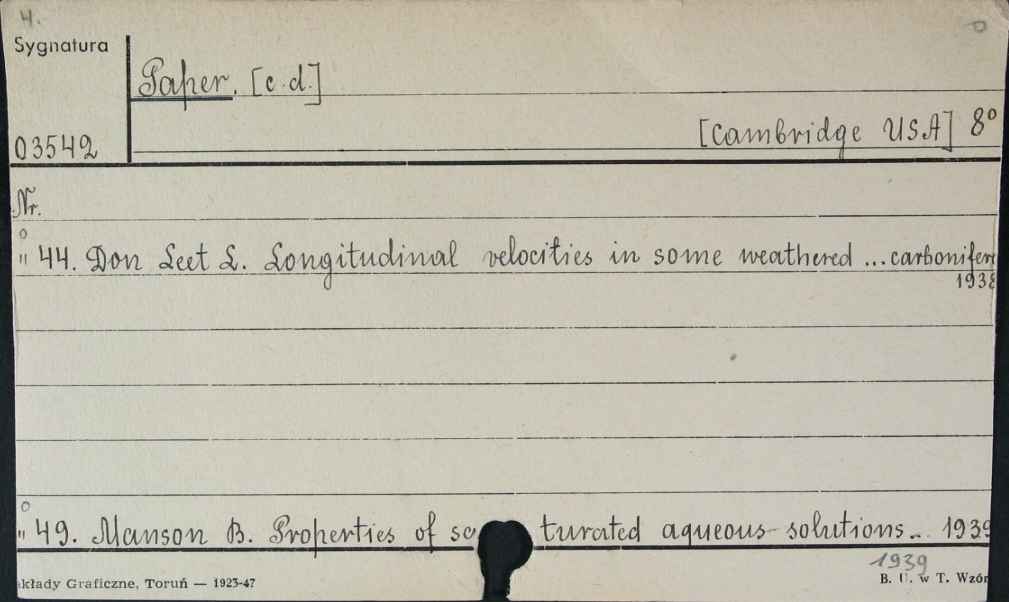 4.
Sygnatura
Paper. [c.d.]
[Cambridge USA] 8°
03542
Nr.
" 44. Don Leet L. Longitudinal velocities in some weathered ... carbonifere
1938
" 49. Manson B. Properties of sa turated aqueous solutions... 1939
1939
kłady Graficzne, Toruń — 1923-47
B. U. w T. Wzór